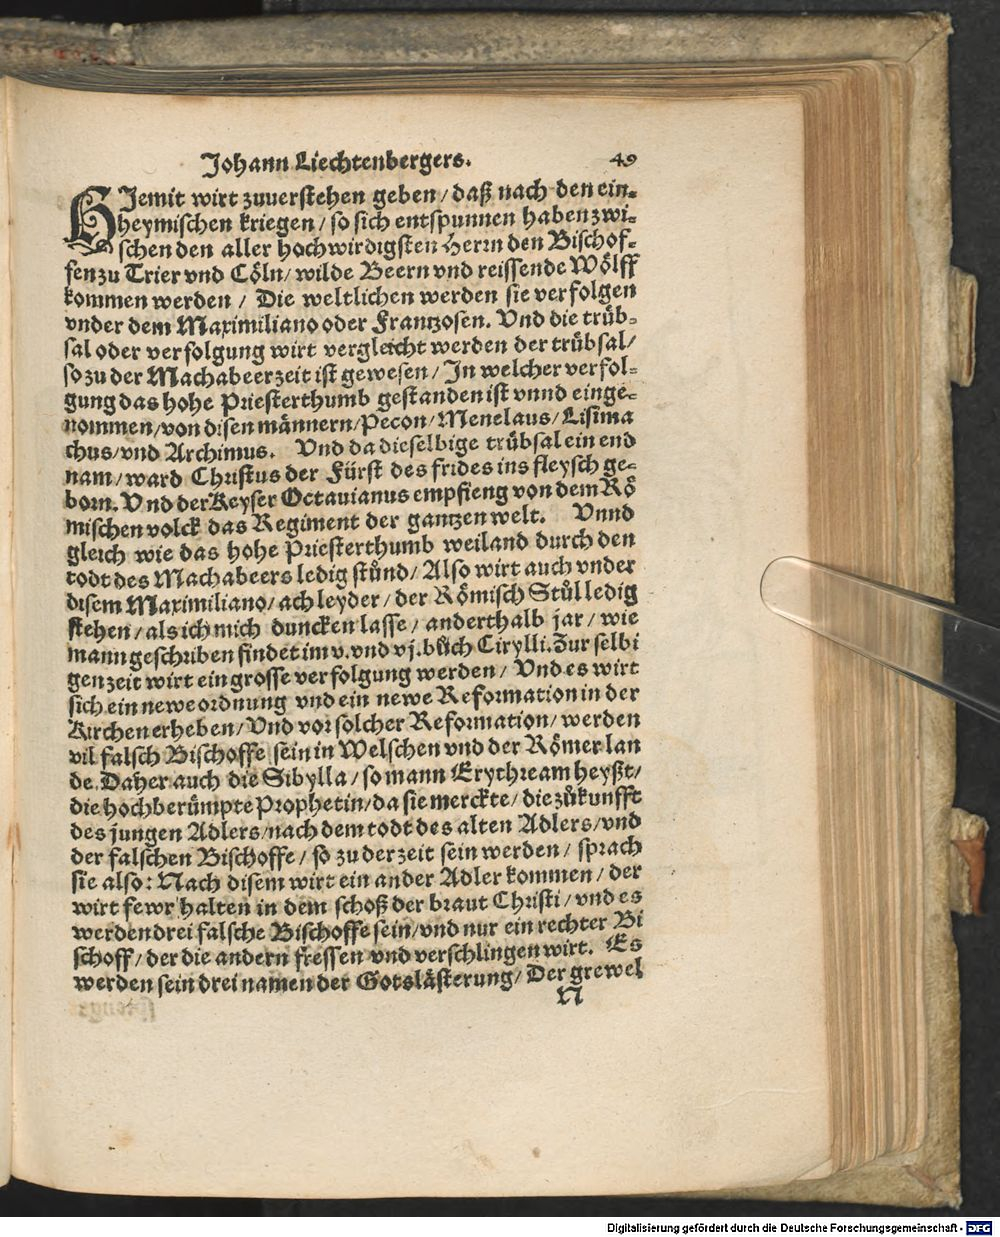 Johann Liechtenbergers. 49
HJemit wirt zuuerstehen geben / daß nach den ein-
heymischen kriegen / so sich entspunnen haben zwi-
schen den aller hochwirdigsten Herrn den Bischof-
fen zu Trier vnd Cöln / wilde Beern vnd reissende Wölff
kommen werden / Die weltlichen werden sie verfolgen
vnder dem Maximiliano oder Frantzosen. Vnd die trüb-
sal oder verfolgung wirt vergleicht werden der trübsal /
so zu der Machabeer zeit ist gewesen / In welcher verfol-
gung das hohe Priesterthumb gestanden ist vnnd einge-
nommen / von disen männern / Pecon / Menelaus / Lisima
chus / vnd Archimus. Vnd da dieselbige trübsal ein end
nam / ward Christus der Fürst des frides ins fleysch ge-
born. Vnd der Keyser Octauianus empfieng von dem Rö
mischen volck das Regiment der gantzen welt. Vnnd
gleich wie das hohe Priesterthumb weiland durch den
todt des Machabeers ledig stůnd / Also wirt auch vnder
disem Maximiliano / ach leyder / der Römisch Stůl ledig
stehen / als ich mich duncken lasse / anderthalb jar / wie
mann geschriben findet im v. vnd vj. bůch Cirylli. Zur selbi
gen zeit wirt ein grosse verfolgung werden / Vnd es wirt
sich ein newe ordnung vnd ein newe Reformation in der
Kirchen erheben / Vnd vor solcher Reformation / werden
vil falsch Bischoffe sein in Welschen vnd der Römer lan
de. Daher auch die Sibylla / so mann Erythream heyßt /
die hochberümpte Prophetin / da sie merckte / die zůkunfft
des jungen Adlers / nach dem todt des alten Adlers / vnd
der falschen Bischoffe / so zu der zeit sein werden / sprach
sie also: Nach disem wirt ein ander Adler kommen / der
wirt fewr halten in dem schoß der braut Christi / vnd es
werden drei falsche Bischoffe sein / vnd nur ein rechter Bi
schoff / der die andern fressen vnd verschlingen wirt. Es
werden sein drei namen der Gotslästerung / Der grewel
N
Digitalisierung gefördert durch die Deutsche Forschungsgemeinschaft - DFG